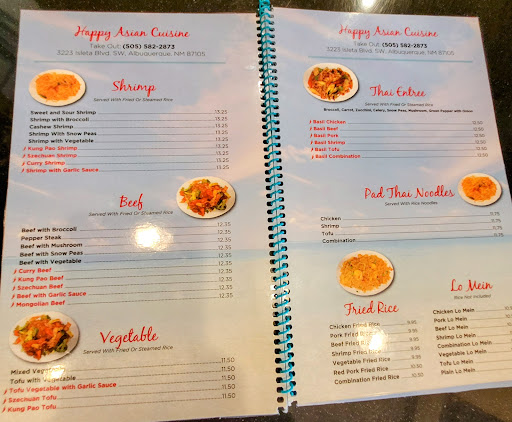 Happy Asian Cuisine
Take Out: (505) 582-2873
3223 Isleta Blvd. SW, Albuquerque, NM 87105
Shrimp
Served With Fried Or Steamed Rice
Sweet and Sour Shrimp 13.25
Shrimp with Broccoli 13.25
Cashew Shrimp 13.25
Shrimp With Snow Peas 13.25
Shrimp with Vegetable 13.25
Kung Pao Shrimp 13.25
Szechuan Shrimp 13.25
Curry Shrimp 13.25
Shrimp with Garlic Sauce 13.25
Beef
Served With Fried Or Steamed Rice
Beef with Broccoli 12.35
Pepper Steak 12.35
Beef with Mushroom 12.35
Beef with Snow Peas 12.35
Beef with Vegetable 12.35
Curry Beef 12.35
Kung Pao Beef 12.35
Szechuan Beef 12.35
Beef with Garlic Sauce 12.35
Mongolian Beef 12.35
Vegetable
Served With Fried Or Steamed Rice
Mixed Vegetable 11.50
Tofu with Vegetable 11.50
Tofu Vegetable with Garlic Sauce 11.50
Szechuan Tofu 11.50
Kung Pao Tofu 11.50
Happy Asian Cuisine
Take Out: (505) 582-2873
3223 Isleta Blvd. SW, Albuquerque, NM 87105
Thai Entree
Served With Fried Or Steamed Rice
Broccoli, Carrot, Zucchini, Celery, Snow Peas, Mushroom, Green Pepper with Onion
Basil Chicken 12.50
Basil Beef 12.50
Basil Pork 12.50
Basil Shrimp 12.50
Basil Tofu 12.50
Basil Combination 12.50
Pad Thai Noodles
Served With Rice Noodles
Chicken 11.75
Shrimp 11.75
Tofu 11.75
Combination
Fried Rice
Chicken Fried Rice 9.95
Pork Fried Rice 9.95
Beef Fried Rice 9.95
Shrimp Fried Rice 9.95
Vegetable Fried Rice 9.95
Red Pork Fried Rice 10.50
Combination Fried Rice 10.50
Lo Mein
Rice Not Included
Chicken Lo Mein
Pork Lo Mein
Beef Lo Mein
Shrimp Lo Mein
Combination Lo Mein
Vegetable Lo Mein
Tofu Lo Mein
Plain Lo Mein